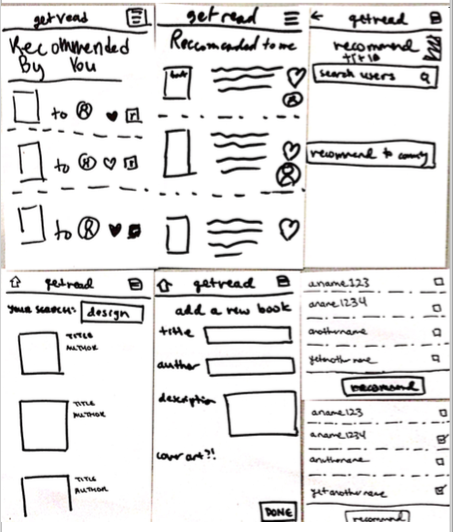 getread
Recommended
By You
to
to
to
getread
Reccomended to me
getread
recommend
title
search users
getread
your search: design
TITLE
AUTHOR
TITLE
AUTHOR
TITLE
AUTHOR
getread
add a new book
title
author
description
cover art?!
DONE
aname123
aname1234
anothername
yetanothername
recommend
aname123
aname1234
anothername
yetanothername
recommend